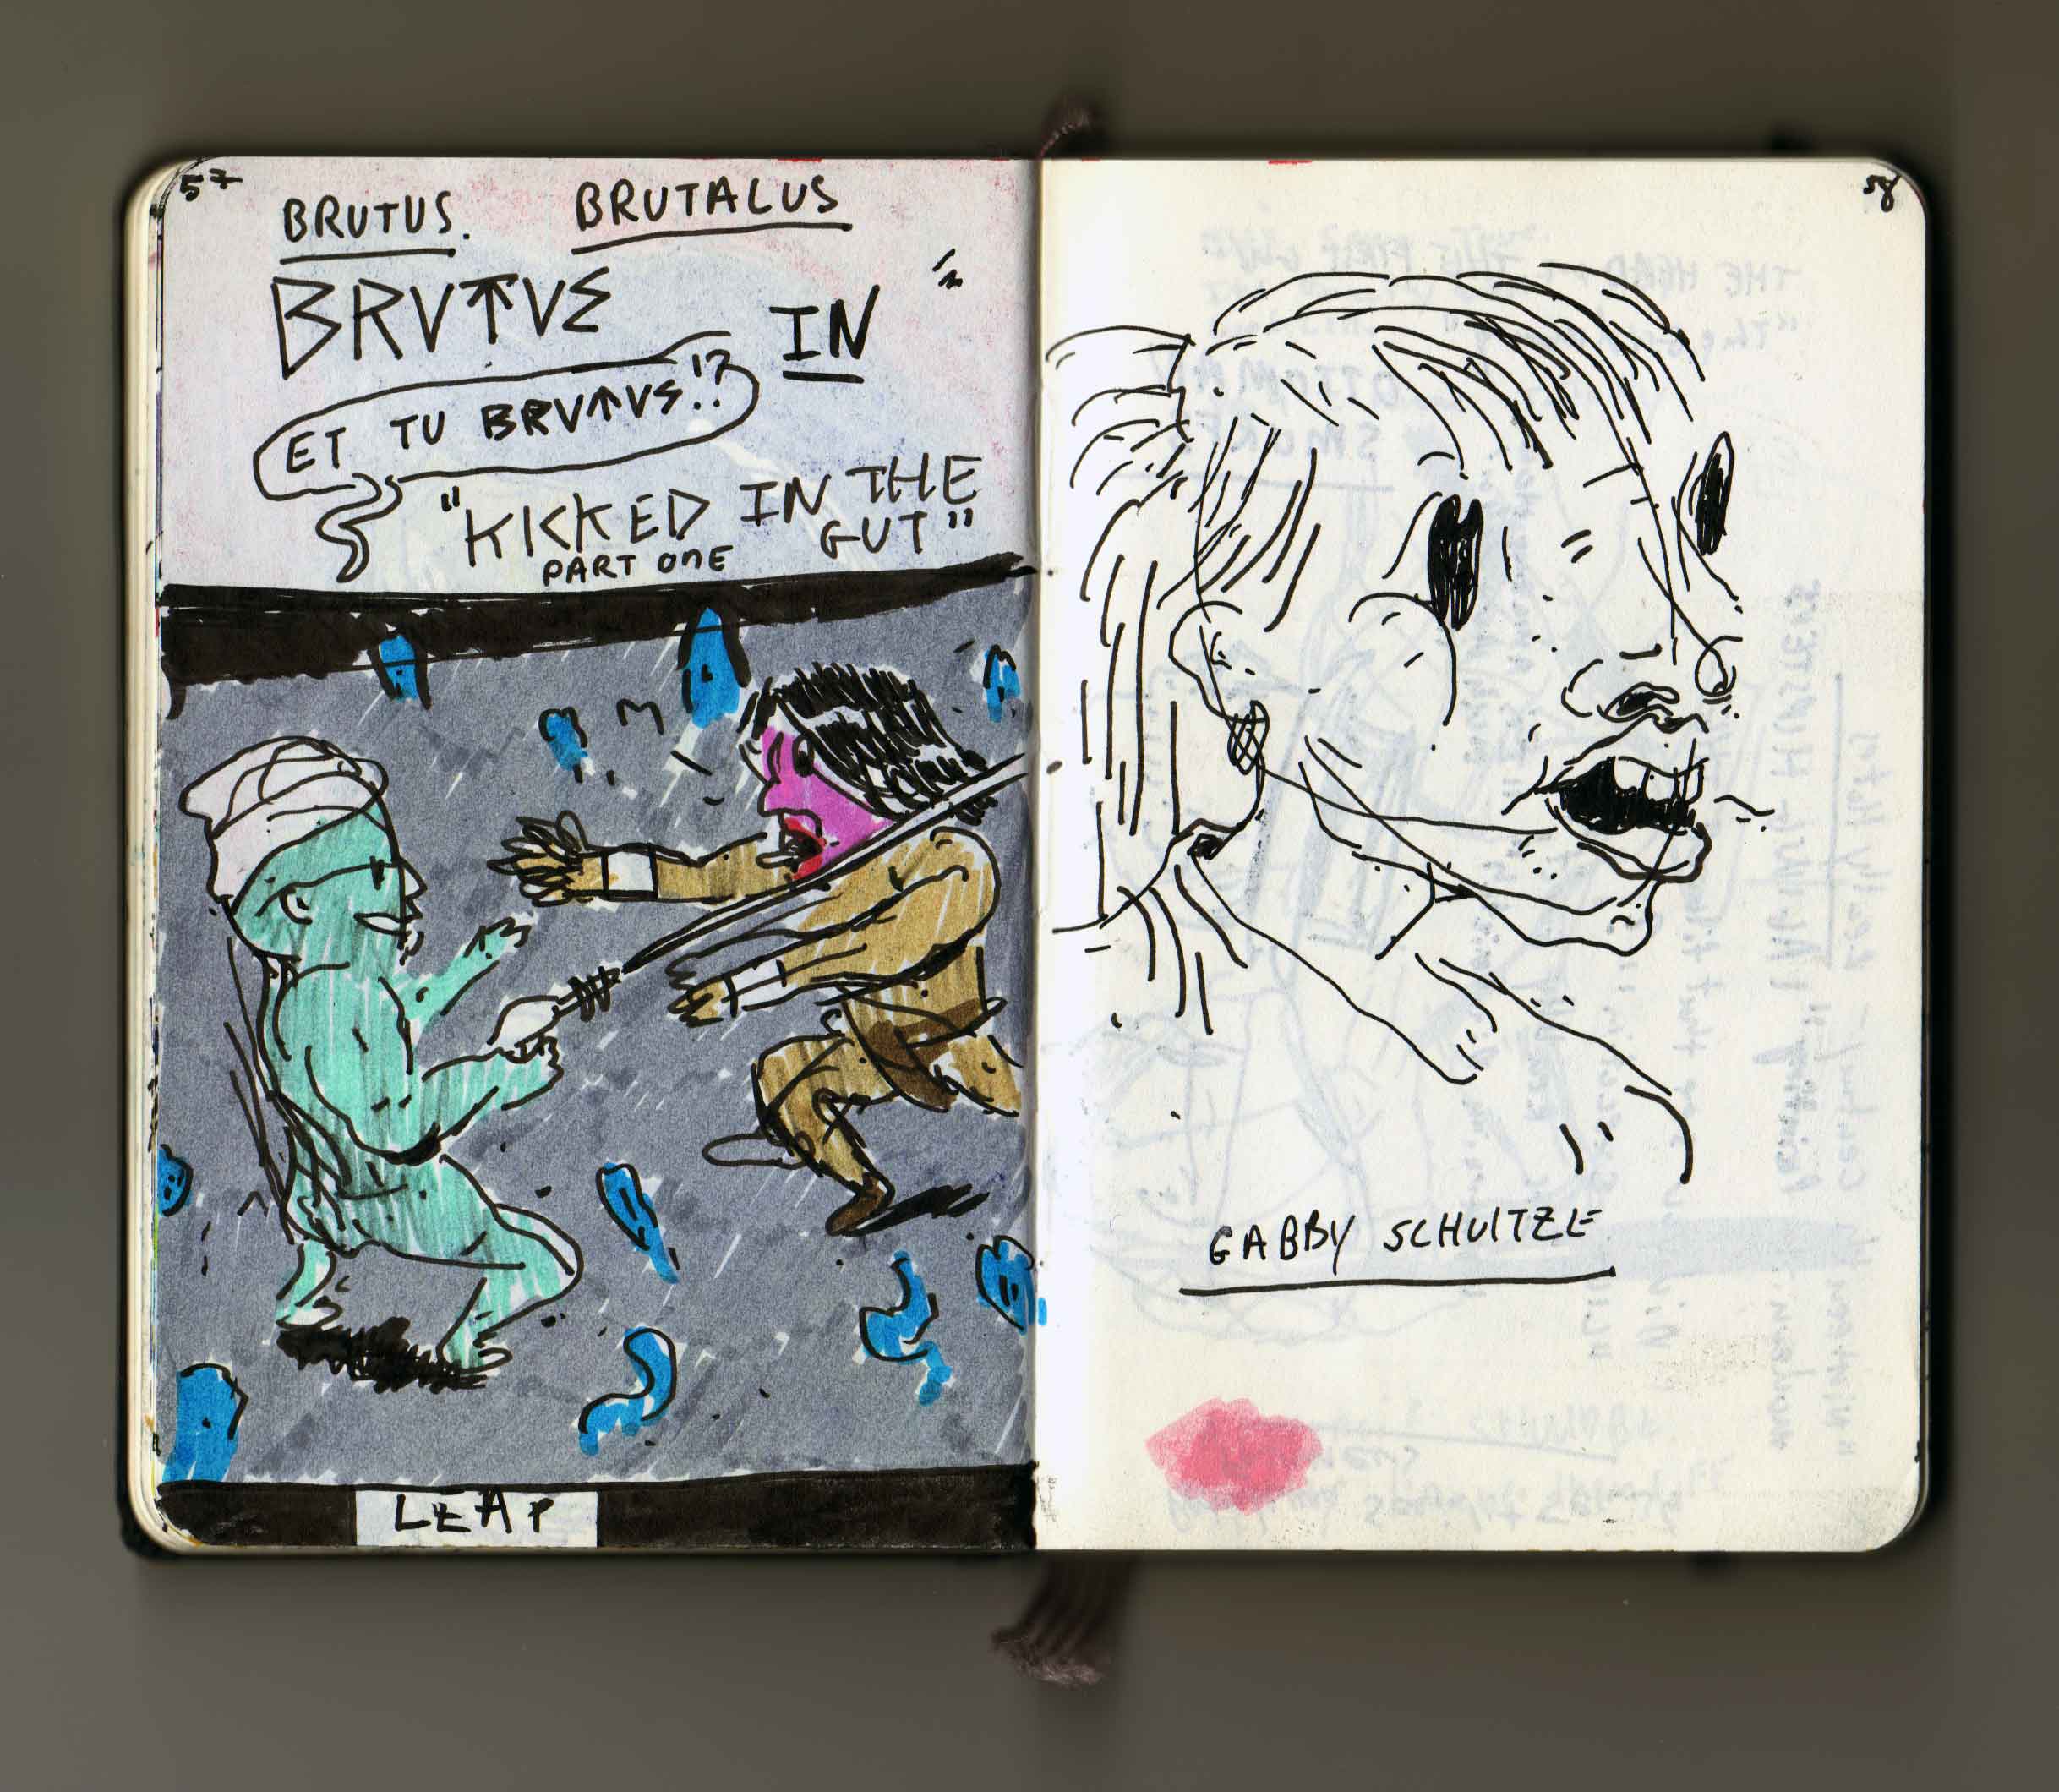 57
BRUTUS. BRUTALUS
BRVTVE IN
ET TU BRVTVS!?
"KICKED IN THE
GUT"
PART ONE
LEAP
58
GABBY SCHULTZE